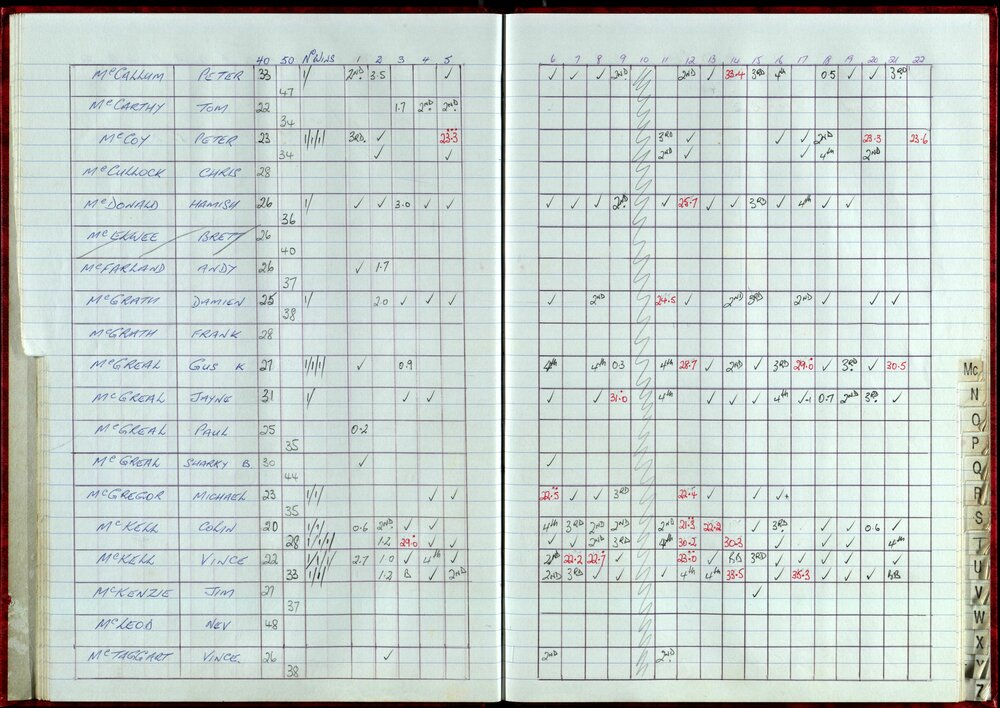 40 50 No WINS 1 2 3 4 5 6 7 8 9 10 11 12 13 14 15 16 17 18 19 20 21 22
McCALLUM PETER 33 1/ 2ND 3.5 ✓ ✓ ✓ ✓ 2ND 2ND ✓ 33.4 3RD 4th 0.5 ✓ ✓ 3RD
47
McCARTHY TOM 22 1.7 2ND 2ND
34
McCOY PETER 23 1/1/1/ 3RD ✓ 23.3 3RD ✓ ✓ ✓ 2ND 23.3 23.6
34 ✓ ✓ 2ND ✓ ✓ 4th 2ND
McCULLOCK CHRIS 28
McDONALD HAMISH 26 1/ ✓ ✓ 3.0 ✓ ✓ ✓ ✓ ✓ 2ND ✓ 25.7 ✓ ✓ 3RD ✓ 4th ✓ ✓
36
McEKWEE BRETT 26
40
McFARLAND ANDY 26 ✓ 1.7
37
McGRATH DAMIEN 25 1/ 2.0 ✓ ✓ ✓ ✓ 2ND 24.5 ✓ 2ND 3RD 2ND ✓ ✓ ✓
38
McGRATH FRANK 28
McGREAL GUS K 27 1/1/1/ ✓ 0.9 4th 4th 0.3 4th 28.7 ✓ 2ND ✓ 3RD 29.0 ✓ 3RD ✓ 30.5
McGREAL JAYNE 31 1/ ✓ ✓ ✓ ✓ 31.0 4th ✓ ✓ ✓ ✓ 4th ✓ 0.7 2ND 3RD ✓
McGREAL PAUL 25 0.2
35
McGREAL SHARKY B 30 ✓ ✓
44
McGREGOR MICHAEL 23 1/1/ ✓ ✓ 22.5 ✓ ✓ 3RD 22.4 ✓ ✓ ✓
35
McKELL COLIN 20 1/1/ 0.6 2ND ✓ ✓ 4th 3RD 2ND 2ND 2ND 21.3 22.2 ✓ 3RD ✓ ✓ 0.6 ✓
28 1/1/1/ 1.2 29.0 ✓ ✓ ✓ ✓ 2ND 3RD 4th 30.2 30.3 ✓ ✓ ✓ 4th
McKELL VINCE 22 1/1/1/ 2.7 1.0 ✓ 4th ✓ 2ND 22.2 22.7 ✓ 23.0 ✓ RB 3RD ✓ ✓ ✓ ✓
33 1/1/ 1.2 B ✓ 2ND 2ND 3RD ✓ ✓ ✓ 4th 4th 33.5 ✓ 35.3 ✓ ✓ ✓ RB
McKENZIE JIM 27 ✓
37
McLEOD NEV 48
McTAGGART VINCE 26 ✓ 2ND 2ND
38
Mc
N
O
P
Q
R
S
T
U
V
W
X
Y
Z